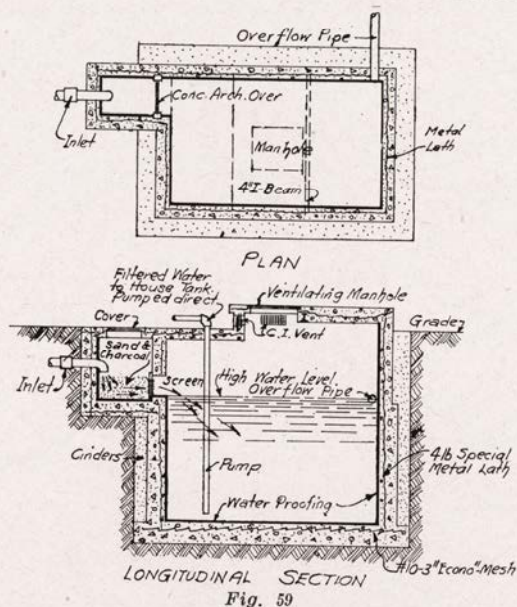 Overflow Pipe
Conc. Arch. Over
Inlet
Manhole
Metal
Lath
4" I-Beam
PLAN
Filtered Water
to House Tank.
Pumped direct
Ventilating Manhole
Cover
C.I. Vent
Grade
Sand &
Charcoal
Inlet
Screen
High Water Level
Overflow Pipe
Cinders
Pump
4lb Special
Metal Lath
Water Proofing
#10-3"Econo"-Mesh
LONGITUDINAL SECTION
Fig. 59